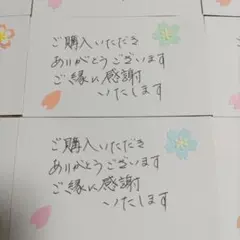 ご購入いただき
ありがとうございます
ご縁に感謝
いたします
ご購入いただき
ありがとうございます
ご縁に感謝
いたします